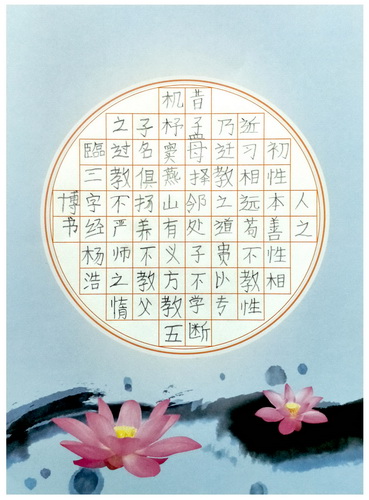 人之
初性本善性相
近习相远苟不教性
乃迁教之道贵以专
昔孟母择邻处子不学断
机杼窦燕山有义方教五
子名俱扬养不教父
之过教不严师之惰
臨三字经杨浩
博书